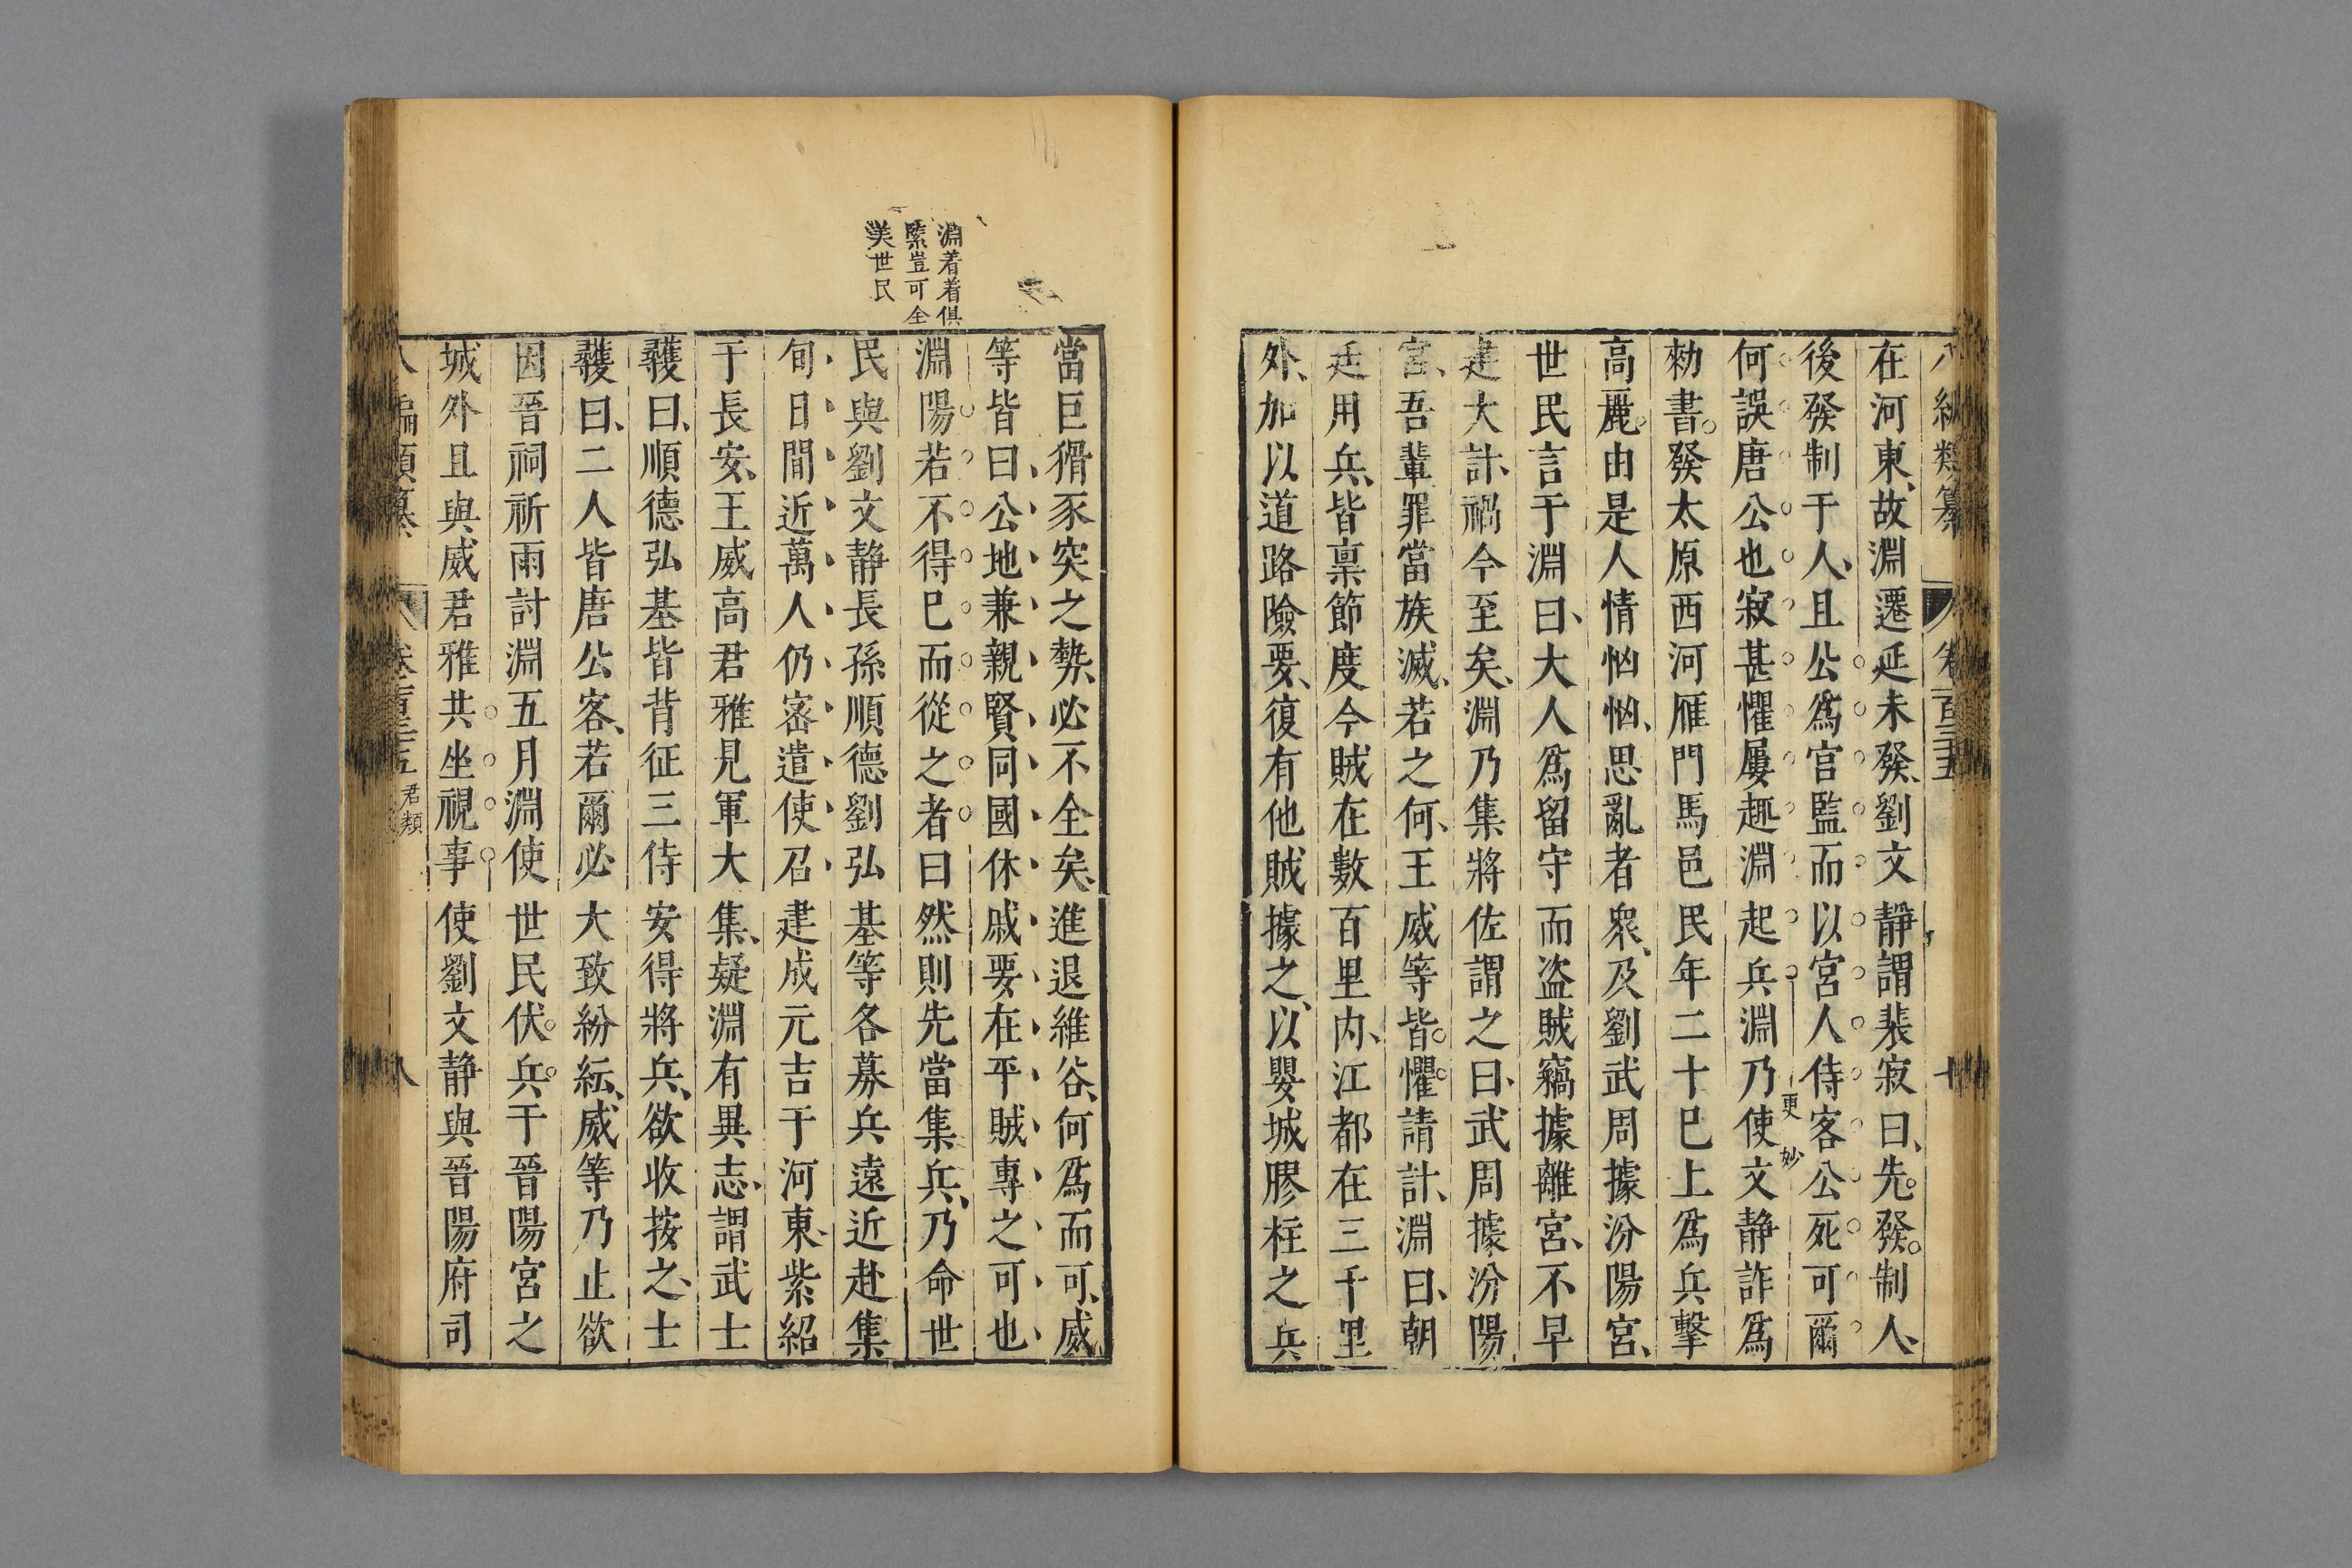 八編類纂 卷百三十五
在河東故淵遷延未發劉文靜謂裴寂曰先發制人
後發制于人且公爲官監而以宮人侍客公死可爾
何誤唐公也寂甚懼屢趣淵起兵淵乃使文靜詐爲
更妙
勑書發太原西河雁門馬邑民年二十巳上爲兵擊
高麗由是人情忷忷思亂者衆及劉武周據汾陽宮
世民言于淵曰大人爲留守而盗賊竊據離宮不早
建大計禍今至矣淵乃集將佐謂之曰武周據汾陽
宮吾輩罪當族滅若之何王威等皆懼請計淵曰朝
廷用兵皆稟節度今賊在數百里內江都在三千里
外加以道路險要復有他賊據之以嬰城膠柱之兵
當巨猾豕突之勢必不全矣進退維谷何爲而可威
等皆曰公地兼親賢同國休戚要在平賊專之可也
淵陽若不得巳而從之者曰然則先當集兵乃命世
淵着着俱
緊豈可全
美世民
民與劉文靜長孫順德劉弘基等各募兵遠近赴集
旬日間近萬人仍密遣使召建成元吉于河東紫紹
于長安王威高君雅見軍大集疑淵有異志謂武士
彠曰順德弘基皆背征三侍安得將兵欲收按之士
彠曰二人皆唐公客若爾必大致紛紜威等乃止欲
因晉祠祈雨討淵五月淵使世民伏兵于晉陽宮之
城外且與威君雅共坐視事使劉文靜與晉陽府司
八編類纂 卷百三十五 君類 八